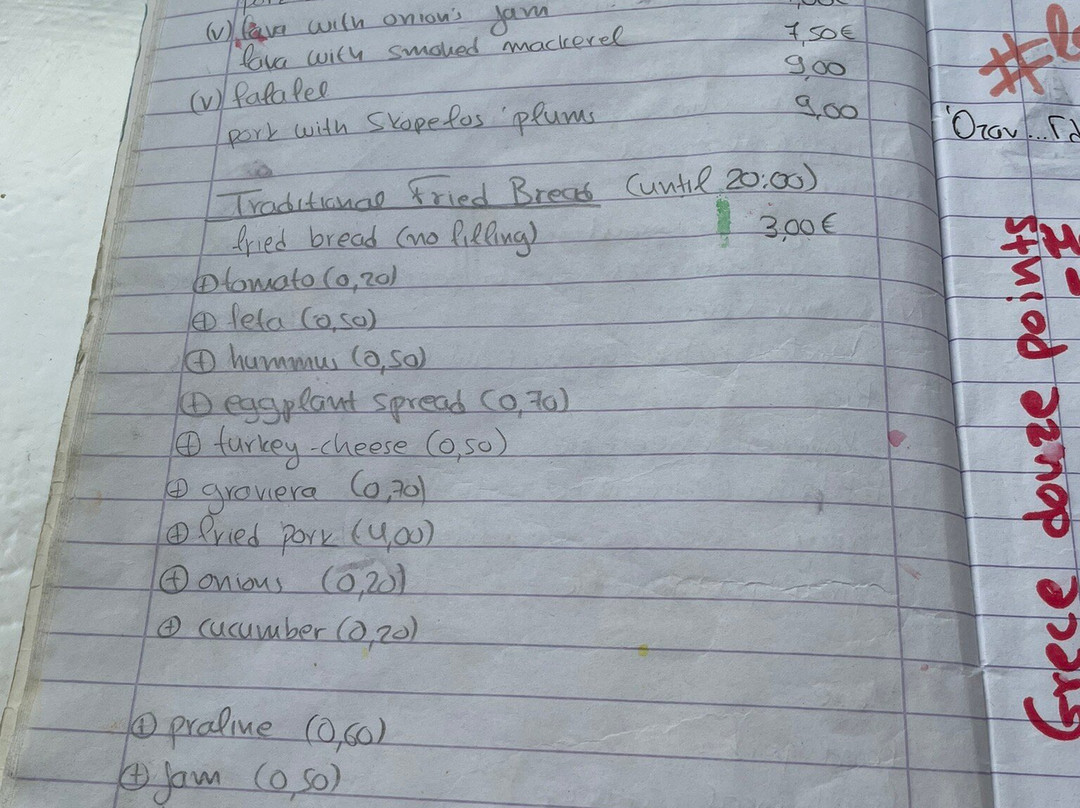 (v) fava with onion's jam
fava with smoked mackerel 7,50€
(v) falafel 9,00
pork with Skopelos' plums 9,00
Traditional Fried Bread (until 20:00)
fried bread (no filling) 3,00€
⊕ tomato (0,20)
⊕ feta (0,50)
⊕ hummus (0,50)
⊕ eggplant spread (0,70)
⊕ turkey-cheese (0,50)
⊕ graviera (0,70)
⊕ fried pork (4,00)
⊕ onions (0,20)
⊕ cucumber (0,20)
⊕ praline (0,60)
⊕ jam (0,50)
Όταν...
Greece douze points